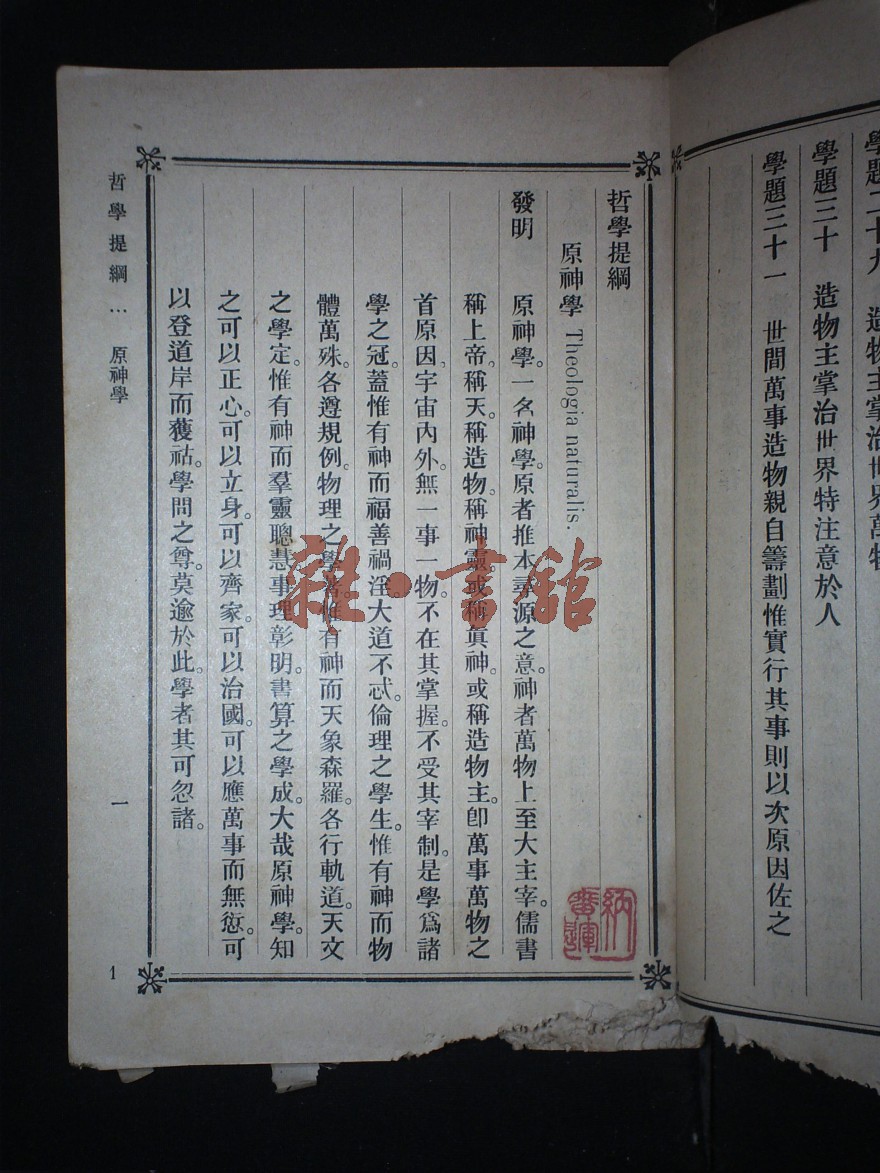 學題二十九 造物主掌治世界萬物
學題三十 造物主掌治世界特注意於人
學題三十一 世間萬事造物親自籌劃惟實行其事則以次原因佐之
哲學提綱
原神學 Theologia naturalis.
發明 原神學。一名神學。原者推本尋源之意。神者萬物上至大主宰。儒書
稱上帝。稱天。稱造物。稱神靈。或稱眞神。或稱造物主。卽萬事萬物之
首原因。宇宙內外。無一事一物。不在其掌握。不受其宰制。是學爲諸
學之冠。蓋惟有神而福善禍淫。大道不忒。倫理之學生。惟有神而物
體萬殊。各遵規例。物理之學著。惟有神而天象森羅。各行軌道。天文
之學定。惟有神而羣靈聰慧。事理彰明。書算之學成。大哉原神學。知
之可以正心。可以立身。可以齊家。可以治國。可以應萬事而無愆。可
以登道岸而獲祜。學問之尊。莫逾於此。學者其可忽諸。
哲學提綱 … 原神學
一
1
雜·書館